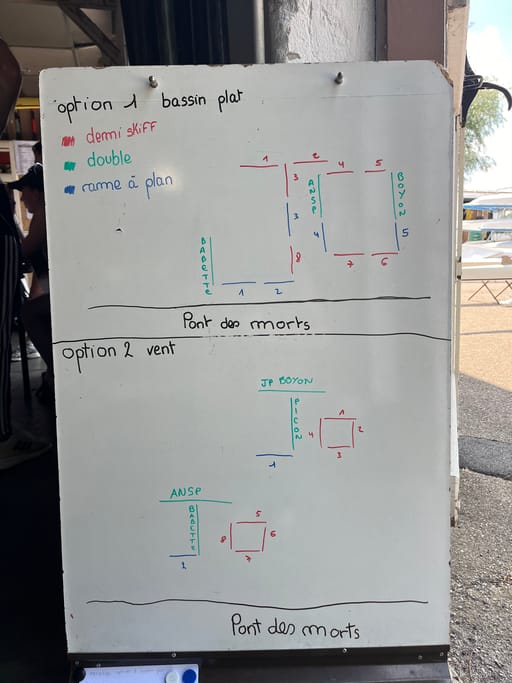 option 1 bassin plat
demi skiff
double
rame à plan
1
2
3
4
5
ANSP
BOYON
3
4
5
8
7
6
BABETTE
1
2
Pont des morts
option 2 vent
JP BOYON
PICON
1
4
2
3
1
ANSP
BABETTE
5
8
6
7
2
Pont des morts